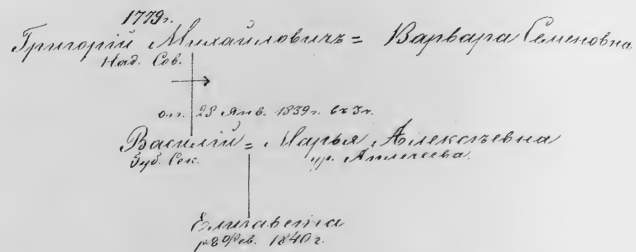 1779г.
Григорій Михайловичъ = Варвара Семеновна
Над. Сов.
оп. 28 Янв. 1839г.
Василій = Марья Алексѣевна
Губ. Сек. ур.
Елизавета
1840 г.